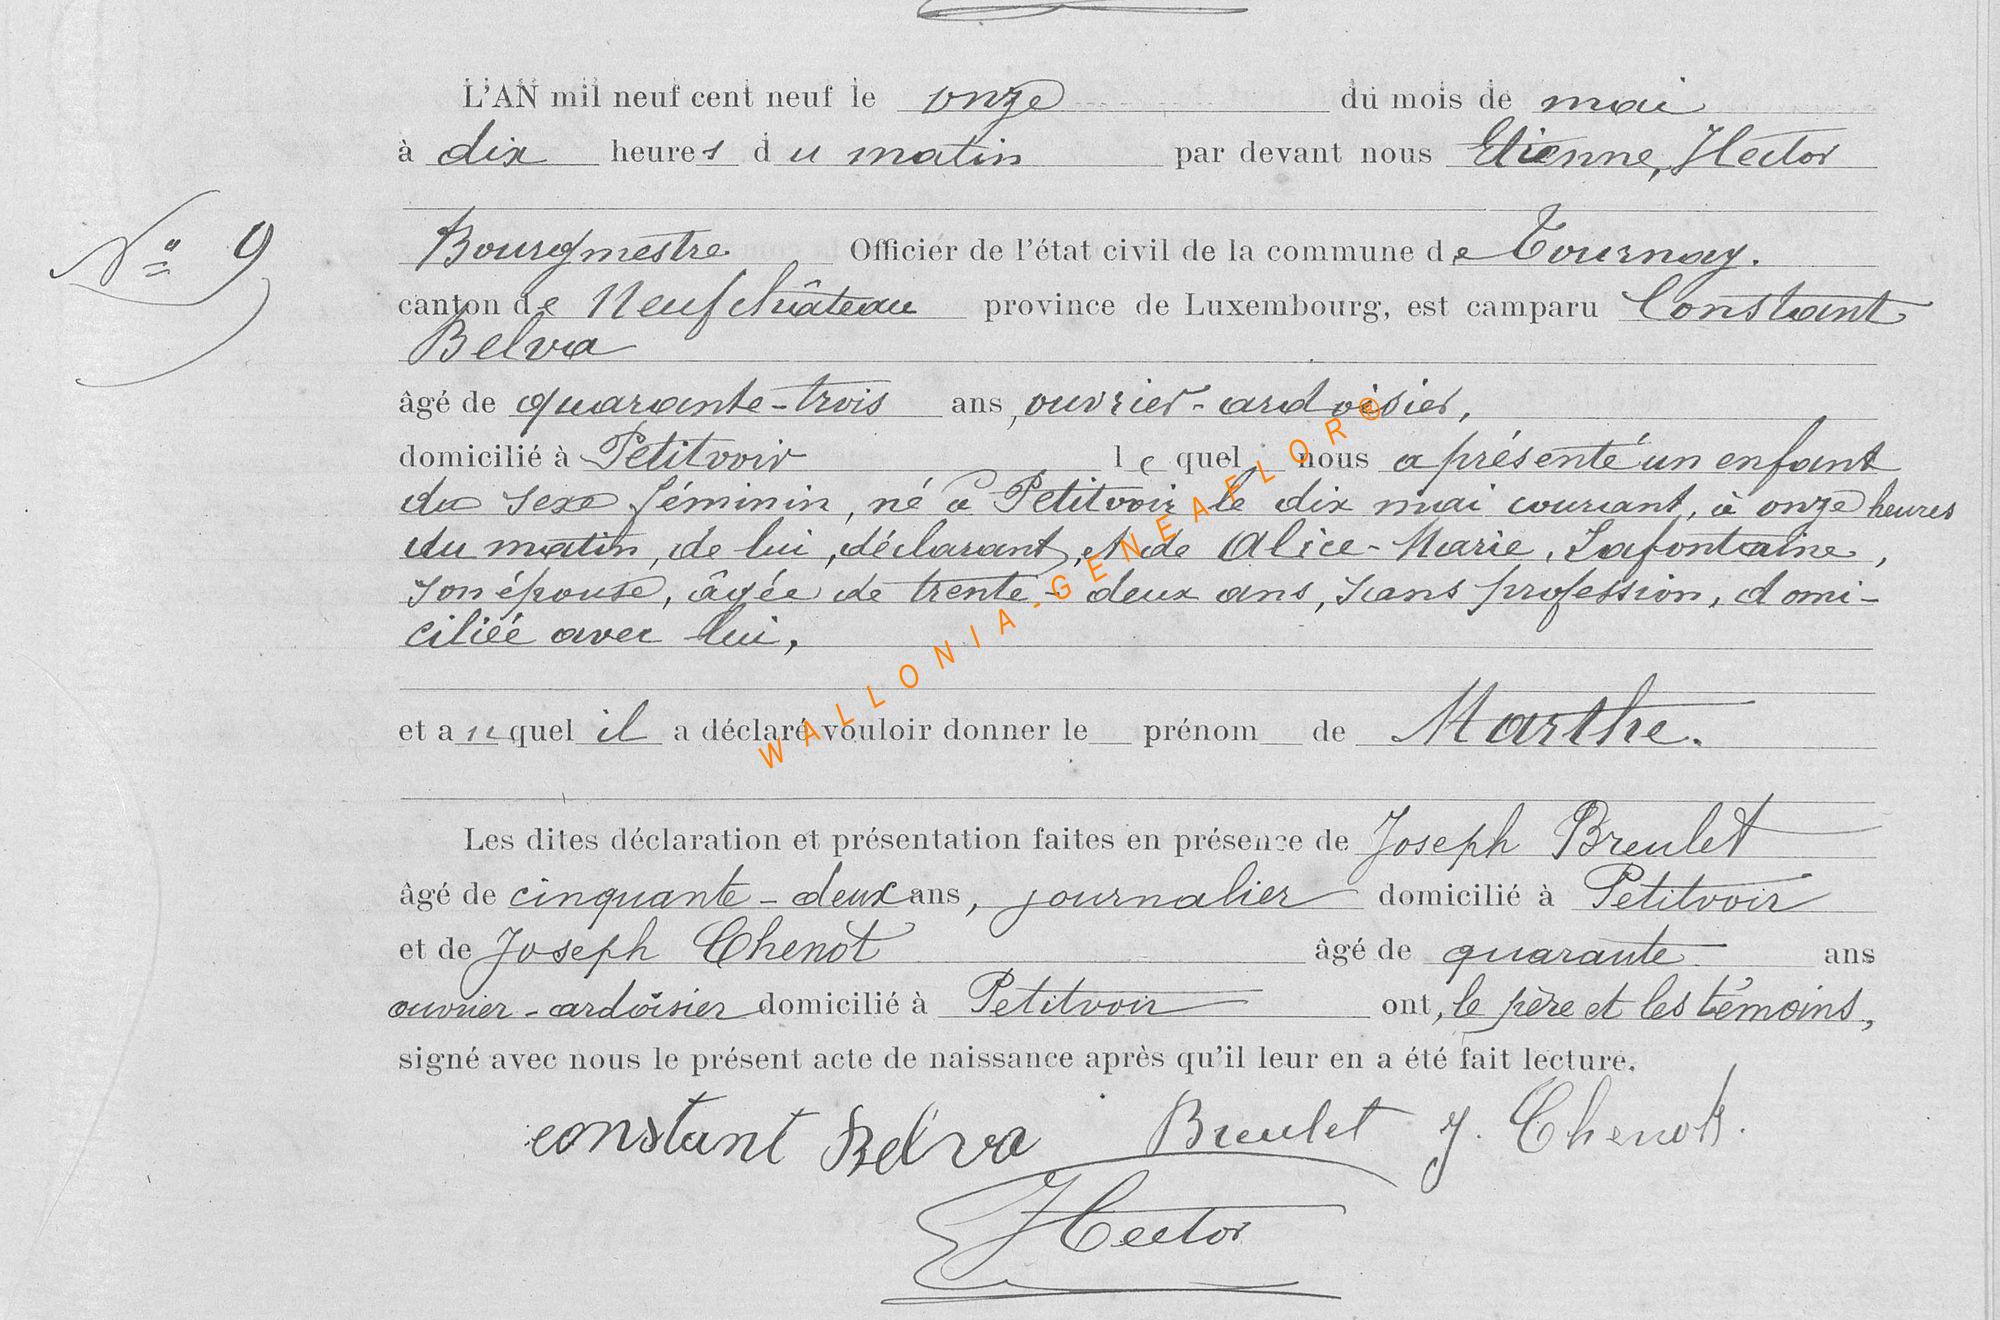 L'AN mil neuf cent neuf le onze du mois de mai
à dix heures du matin par devant nous Etienne, Hector
Nº 9
Bourgmestre Officier de l'état civil de la commune de Tournay.
canton de Neufchâteau province de Luxembourg, est camparu Constant
Belva
âgé de quarante-trois ans, ouvrier-ardoisier,
domicilié à Petitvoir lequel nous a présenté un enfant
du sexe féminin, né à Petitvoir le dix mai courant, à onze heures
du matin, de lui, déclarant, et de Alice-Marie, Lafontaine,
son épouse, âgée de trente-deux ans, sans profession, domi-
ciliée avec lui,
et auquel il a déclaré vouloir donner le prénom de Marthe.
Les dites déclaration et présentation faites en présence de Joseph Breulet
âgé de cinquante-deux ans, journalier domicilié à Petitvoir
et de Joseph Chenot âgé de quarante ans
ouvrier-ardoisier domicilié à Petitvoir ont, le père et les témoins,
signé avec nous le présent acte de naissance après qu'il leur en a été fait lecture.
constant Belva Breulet J. Chenot.
Hector
WALLONIA-GENEAFLOR©